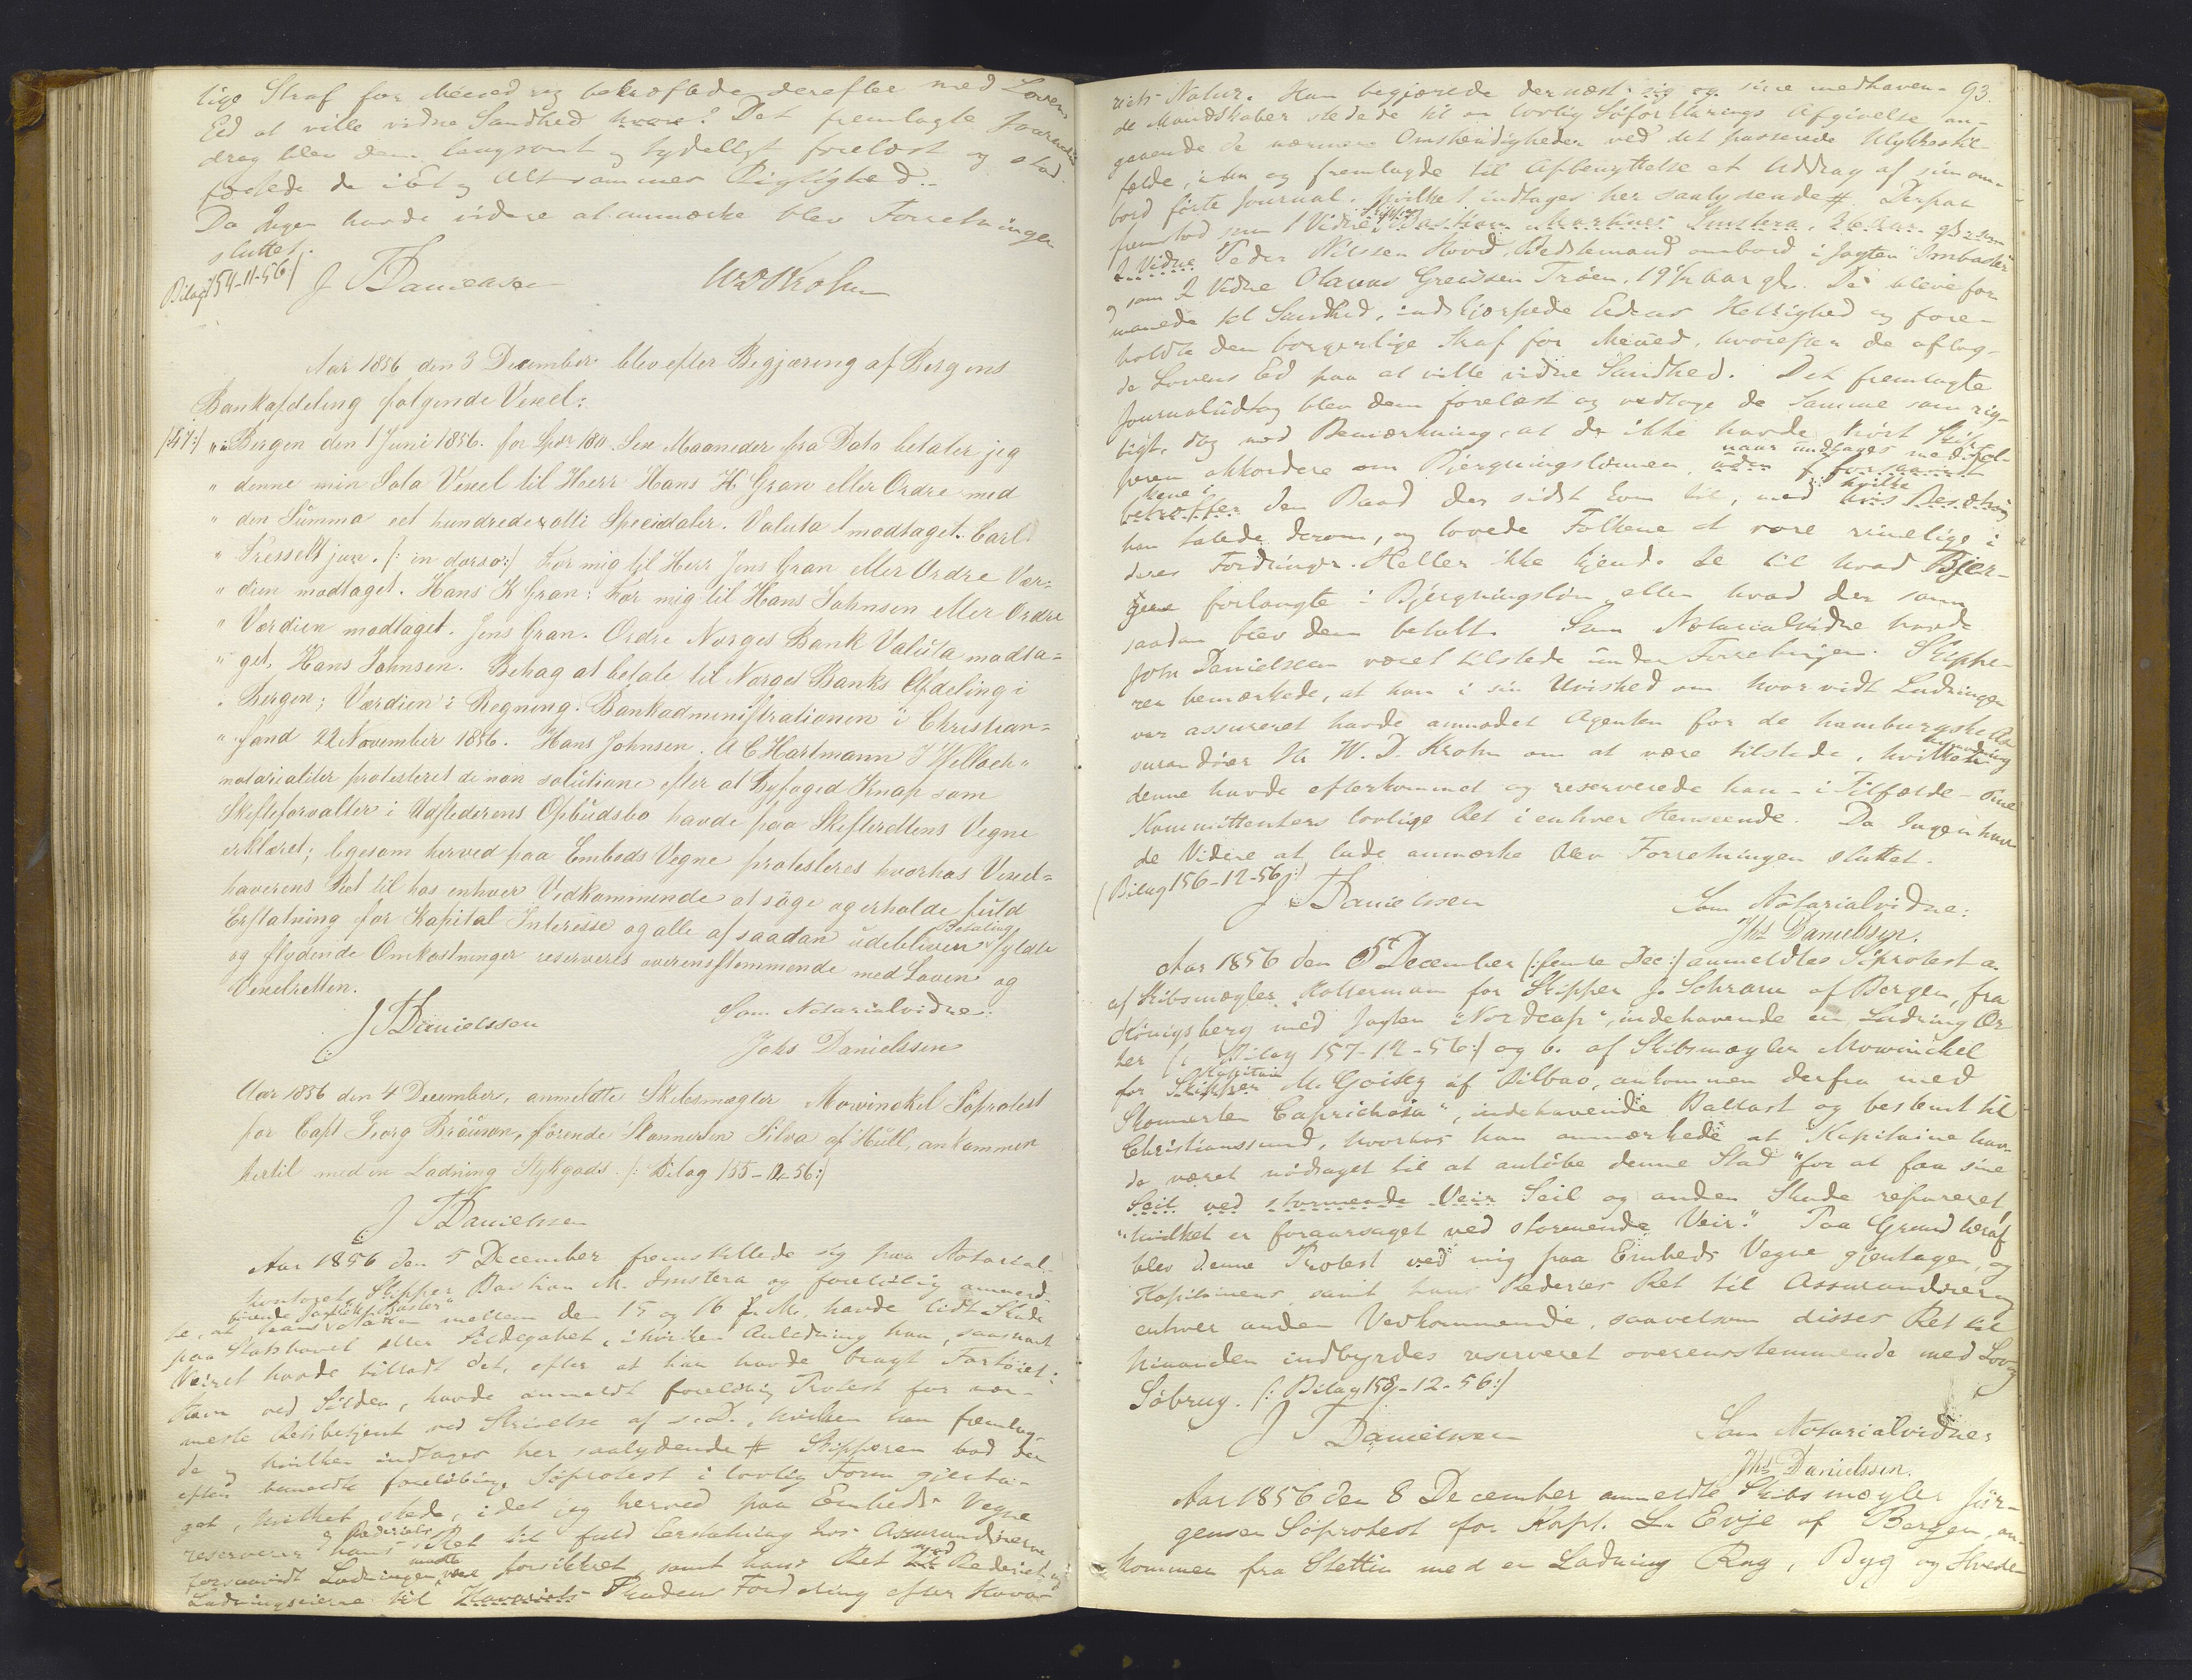 lige Straf for Meened og bekræftede derefter med Lovens
Eed at ville vidne Sandhed hvor? Det fremlagte Journalud
drag blev dem langsomt og tydeligt forelæst og stad.
fæstede de i Et og Alt sammes Rigtighed.
Da Ingen havde videre at anmærke blev Forretningen
sluttet.
Bilag 154-11-56/
J T Danielssen
WDKrohn
Aar 1856 den 3 December blev efter Begjæring af Bergens
Bankafdeling følgende Vexel:
/:47:/ "Bergen den 1 Juni 1856. for Spdr 180. Sex Maaneder fra Dato betaler jeg
" denne min Sola Vexel til Herr Hans K Gran eller Ordre med
" den Summa eet hundrede og otti Speciedaler. Valuta modtaget. Carl
" Tresselt jun. /: in dorso:/ For mig til Herr Jens Gran eller Ordre Vær-
" dien modtaget. Hans K Gran: For mig til Hans Johnsen eller Ordre
" Værdien modtaget. Jens Gran. Ordre Norges Bank Valuta modta=
" get, Hans Johnsen. Behag at betale til Norges Banks Afdeling i
" Bergen; Værdien i Regning. Bankadministrationen i Christian=
" sand 22 November 1856. Hans Johnsen. A C Hartmann J Wellach"
notarialiter protesteret de non solutione efter at Byfoged Knap som
Skifteforvalter i Udstederens Opbudsbo havde paa Skifterettens Vegne
erklæret; ligesom herved paa Embeds Vegne protesteres hvorhos Vexel=
haverens Ret til hos enhver Vedkommende at søge og erholde fuld
Erstatning for Kapital Interesse og alle af saadan udebleven Betaling fyldte
og flydende Omkostninger reserveres overensstemmende med Loven og
Vexelretten.
J T Danielssen
Som Notarialvidne:
Johs Danielssen
Aar 1856 den 4 December, anmeldte Skibsmægler Mowinckel Søprotest
for Capt Georg Bröuson, førende Skonnerten Silva af Hull, ankommen
hertil med en Ladning Stykgods. /: Bilag 155-12-56:/
J T Danielssen
Aar 1856 den 5 December fremstillede sig paa Notarial-
kontoret Skipper Bastian M. Imstera og foreløbig anmeld-
te, at hans førende Jagt mellem den 15 og 16 f. M. havde lidt Skade
paa Stathavet eller Sildegabet, i hvilken Anledning han, saasnart
Veiret havde tilladt det, efter at han havde bragt Fartøiet i
Havn ved Silden, havde anmeldt foreløbig Protest for nær-
meste Retsbetjent ved Skrivelse af s. D., hvilken han fremlag-
de og hvilken indtages her saalydende # Skipperen bad der
efter bemeldte foreløbige Søprotest i lovlig Form gjenta-
get, hvilket skede, i det jeg herved paa Embeds Vegne
reserverer hans og Rederiets Ret til fuld Erstatning hos Assurandørerne
forsaavidt Ladningen maatte være forsikkret, samt hans Ret mod Rederiet og
Ladningseierne til Havariets Skadens Fordeling efter Hava-
93.
riets Natur. Han begjærede dernæst sig og sine medhaven-
de Mandskaber stedede til en lovlig Søforklarings Afgivelse an-
gaaende de nærmere Omstændigheder ved det passerede Ulykkestil-
fælde, og fremlagde til Afbenyttelse et Uddrag af sin om-
bord førte Journal, hvilket indtages her saalydende #. Derpaa
fremstod som 1 Vidne Skipper Bastian Martines Imstera, 26 Aar gl som
2 Vidne Peder Nilssen Hovd, Bedstemand ombord i Jagten "Imbasten"
og som 2 Vidne Olavus Greissen Trøen, 19½ Aar gl. De bleve for
manede til Sandhed, indskjærpede Edens Hellighed og fore-
holdte den borgerlige Straf for Meened, hvorefter de aflag-
de Lovens Ed paa at ville vidne Sandhed. Det fremlagte
Journaludtog blev dem forelæst og vedtoge de samme som rig-
tigt, dog med Bemærkning, at de ikke havde hørt Skip-
peren akkordere om Bjergningslønnen, naar undtages med Fol-
kene i den Baad der sidst kom til, med hvilke
han talede derom, og lovede Folkene at være rimelige i
deres Fordringer. Heller ikke kjend. de til hvad Bjer-
gerne forlangte i Bjergningsløn eller hvad der som
saadan blev dem betalt. Som Notarialvidne havde
John Danielssen været tilstede under Forretningen. Skippe-
ren bemærkede, at han i sin Uvished om hvorvidt Ladningen
var assureret havde anmodet Agenten for de hamburgske As-
surandører Hr W. D. Krohn om at være tilstede, hvilken Anmodning
denne havde efterkommet og reserverede han - i Tilfælde - sine
Kommittenters lovlige Ret i enhver Henseende. Da Ingen hav-
de Videre at lade anmærke blev Forretningen sluttet.
(Bilag 156-12-56:/
J T Danielssen
Som Notarialvidne:
Johs Danielssen.
Aar 1856 den 5 December /: femte Dec:/ anmeldtes Søprotest a.
af Skibsmægler Kolterman for Skipper J. Schram af Bergen, fra
Königsberg med Jagten "Nordcap", indehavende en Ladning Er
ter /: Bilag 157-12-56:/ og b. af Skibsmægler Mowinckel
for Kapitain M. Goisey af Bilbao, ankommen derfra med
Skonnerten "Caprichosa", indehavende Ballast og bestemt til
Christianssund, hvorhos han anmærkede at Kapitaine hav-
de været nødsaget til at anløbe denne Stad "for at faa sine
Seil ved stormende Veir Seil og anden Skade repareret,
"hvilket er foraarsaget ved stormende Veir." Paa Grund heraf
blev denne Protest ved mig paa Embeds Vegne gjentagen, og
Kapitainens samt hans Rederies Ret til Assurandører og
enhver anden Vedkommende, saavelsom disses Ret til
hinanden indbyrdes reserveret overensstemmende med Lov og
Søbrug. /: Bilag 158-12-56:/
J T Danielssen
Som Notarialvidne:
Johs Danielssen.
Aar 1856 den 8 December anmeldte Skibsmægler Jör-
gensen Søprotest for Kapt. L. Evje af Bergen, an-
kommen fra Stettin med en Ladning Rug, Byg og Hvede